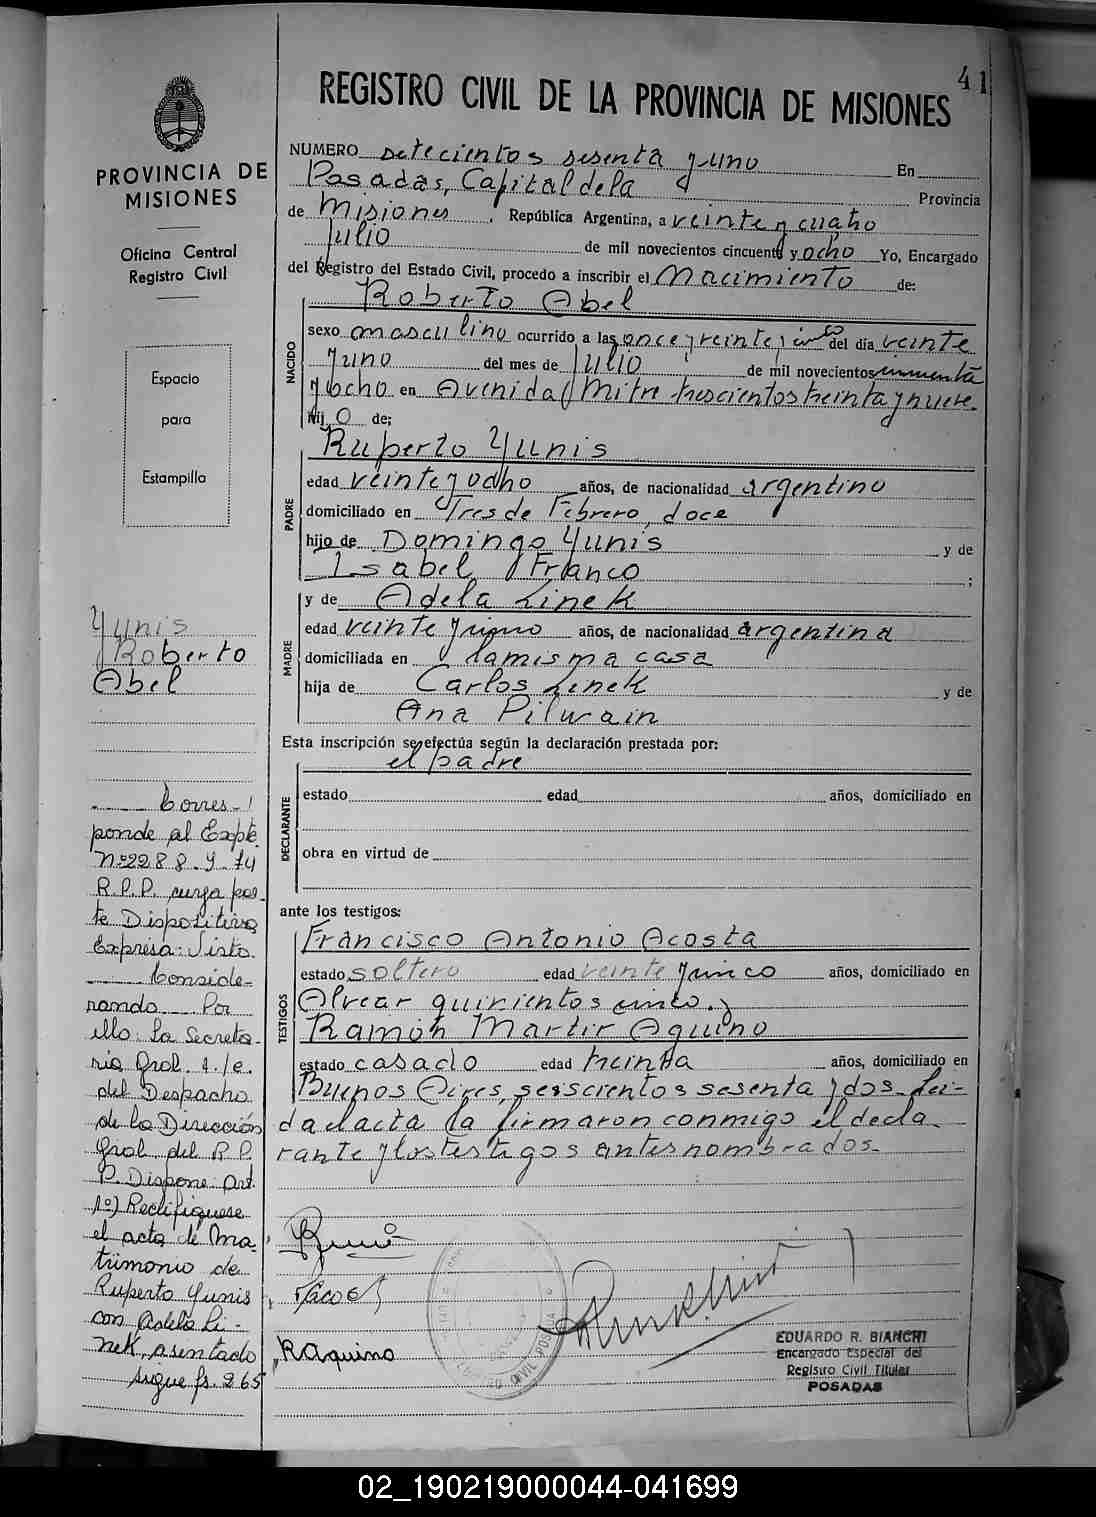 41
REGISTRO CIVIL DE LA PROVINCIA DE MISIONES
PROVINCIA DE
MISIONES
Oficina Central
Registro Civil
Espacio
para
Estampilla
NUMERO setecientos sesenta y uno En
Posadas, Capital de la Provincia
de Misiones, República Argentina, a veinte y cuatro
Julio de mil novecientos cincuenta y ocho Yo, Encargado
del Registro del Estado Civil, procedo a inscribir el Nacimiento de:
Roberto Abel
NACIDO
sexo masculino ocurrido a las once y veinte y cinco del día veinte
y uno del mes de Julio de mil novecientos cincuenta
y ocho en Avenida Mitre trescientos treinta y nueve.
Hijo de:
Ruperto Yunis
PADRE
edad veinte y ocho años, de nacionalidad argentino
domiciliado en Tres de Febrero, doce
hijo de Domingo Yunis y de
Isabel Franco ;
y de Adela Linek
MADRE
edad veinte y años, de nacionalidad argentina
domiciliada en la misma casa
hija de Carlos Linek y de
Ana Pilwain
Esta inscripción se efectúa según la declaración prestada por:
el padre
DECLARANTE
estado edad años, domiciliado en
obra en virtud de
ante los testigos:
TESTIGOS
Francisco Antonio Acosta
estado soltero edad veinte y cinco años, domiciliado en
Alvear quinientos cinco. y
Ramón Martir Aquino
estado casado edad treinta años, domiciliado en
Buenos Aires, seiscientos sesenta y dos. Lei-
da el acta la firmaron conmigo el decla-
rante y los testigos antes nombrados.
RAquino
EDUARDO R. BIANCHI
Encargado Especial del
Registro Civil Titular
POSADAS
Yunis
Roberto
Abel
Corres-
ponde al Expte.
Nº 2288-Y-74
R.P.P. cuya par-
te Dispositiva
Expresa: Visto.
Conside-
rando Por
ello: La Secreta-
ria Gral. a/e.
del Despacho
de la Dirección
Gral. del R.P.
P. Dispone: Art.
1º) Rectifíquese
el acta de Ma-
trimonio de
Ruperto Yunis
con Adela Li-
nek, asentado
sigue fs. 265
02_190219000044-041699